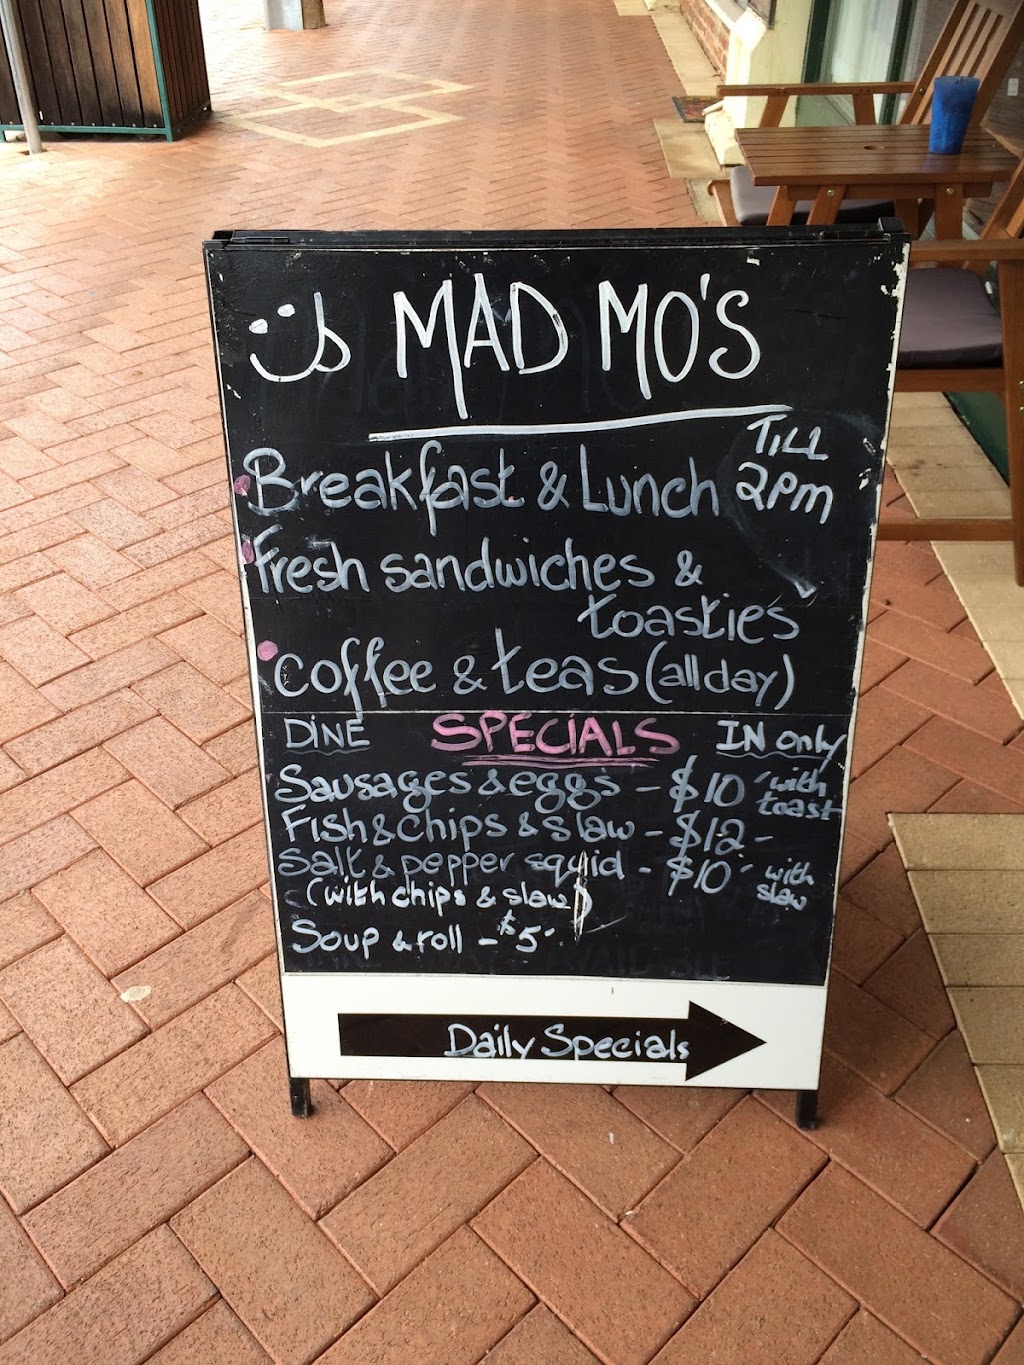 MAD MO'S
Breakfast & Lunch TILL 2pm
Fresh sandwiches &
toasties
Coffee & teas (all day)
DINE SPECIALS IN only
Sausages & eggs - $10 with toast
Fish & chips & slaw - $12 -
Salt & pepper squid - $10 with slaw
(with chips & slaw)
Soup & roll - $5
Daily Specials